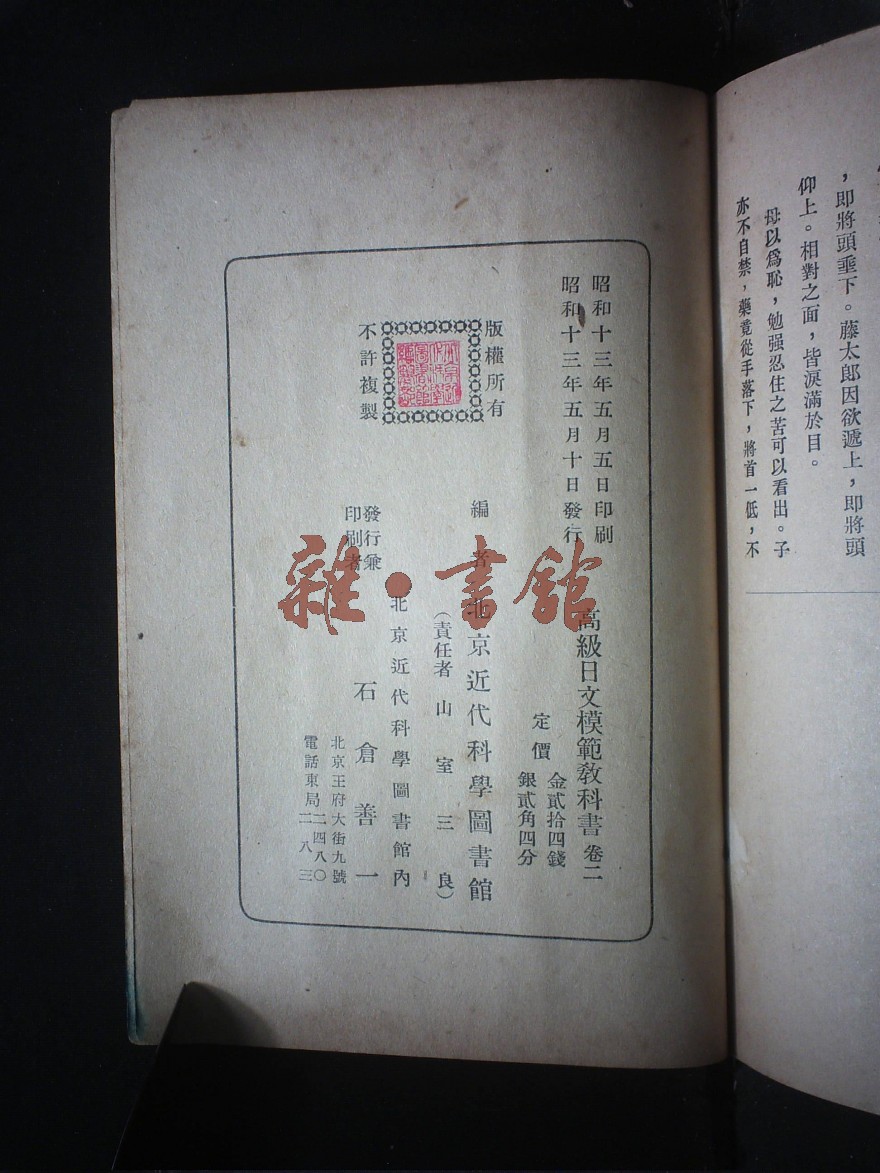 ，即將頭垂下。藤太郎因欲遞上，即將頭
仰上。相對之面，皆淚滿於目。
母以爲恥，勉强忍住之苦可以看出。子
亦不自禁，藥竟從手落下，將首一低，不
昭和十三年五月五日印刷
昭和十三年五月十日發行
高級日文模範敎科書 卷二
定價 金貳拾四錢
銀貳角四分
版權所有
不許複製
編者 北京近代科學圖書館
（責任者 山室三良）
發行兼
印刷者
北京近代科學圖書館內
石倉善一
北京王府大街九號
電話東局二四八〇
二八三
雜·書館